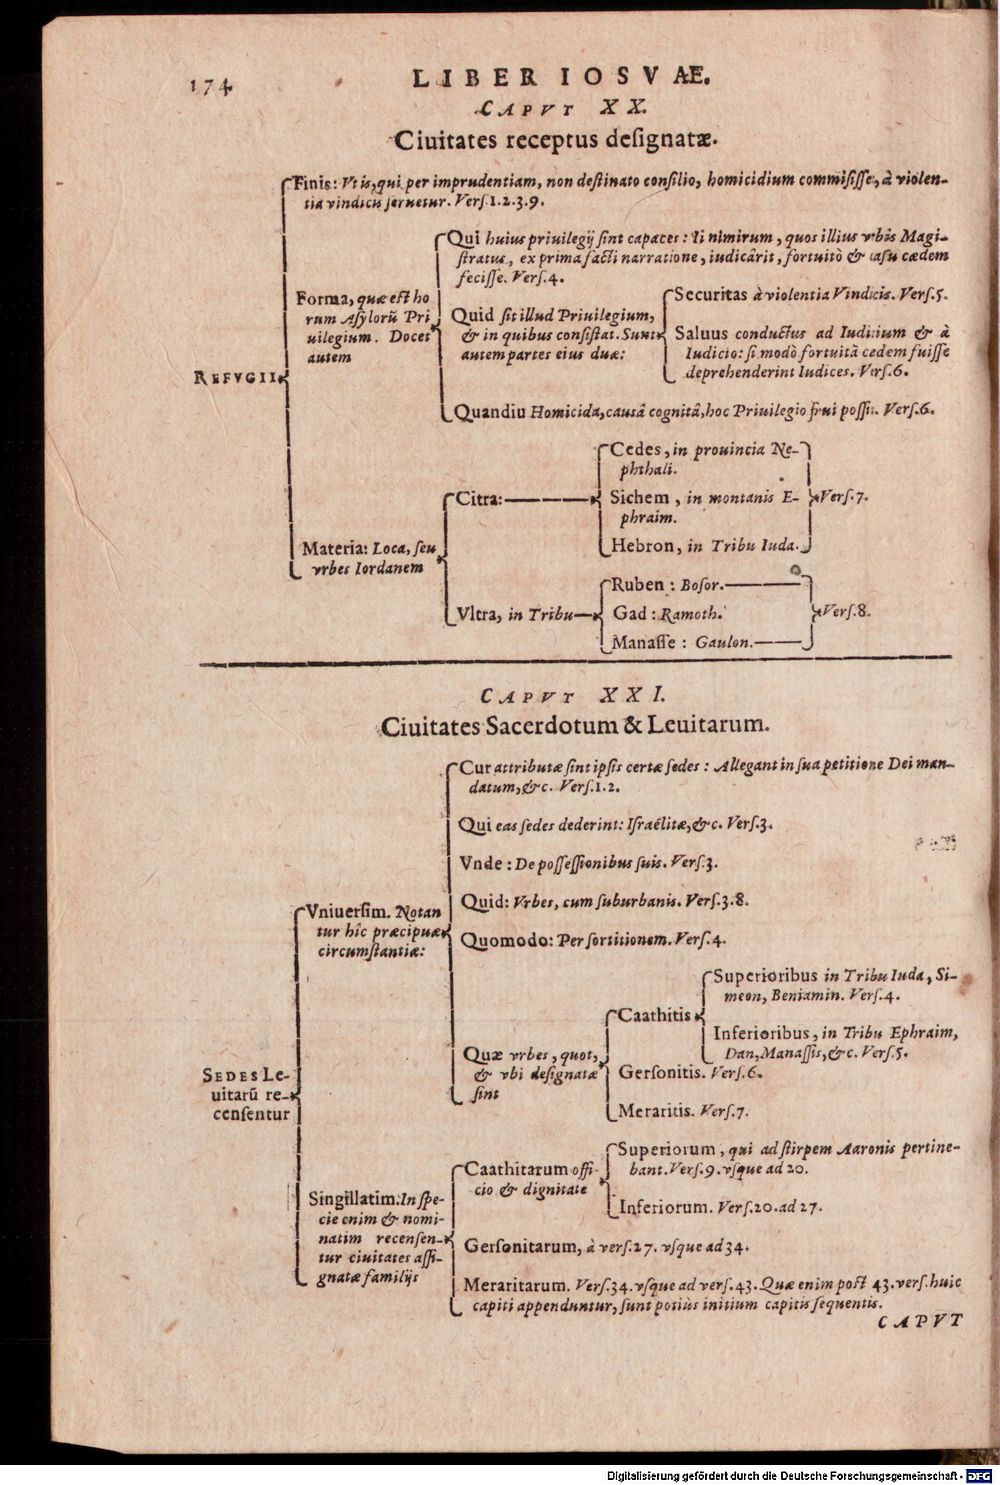 174
LIBER IOSVÆ.
CAPVT XX.
Ciuitates receptus designatæ.
Finis: Vt is, qui per imprudentiam, non destinato consilio, homicidium commisisse, à violen-
tia vindicis seruetur. Vers.1.2.3.9.
Qui huius priuilegij sint capaces: Ii nimirum, quos illius vrbis Magi-
stratus, ex prima facti narratione, iudicârit, fortuitò & casu cædem
fecisse. Vers.4.
Forma, quæ est ho
rum Asylorũ Pri
uilegium. Docet
autem
Quid sit illud Priuilegium,
& in quibus consistat. Sunt
autem partes eius duæ:
Securitas à violentia Vindicis. Vers.5.
Saluus conductus ad Iudicium & à
Iudicio: si modò fortuitã cedem fuisse
deprehenderint Iudices. Vers.6.
REFVGII
Quandiu Homicida, causâ cognitâ, hoc Priuilegio frui possit. Vers.6.
Cedes, in prouincia Ne-
phthali.
Citra:
Sichem, in montanis E-
phraim.
Vers.7.
Hebron, in Tribu Iuda.
Materia: Loca, seu
vrbes Iordanem
Ruben: Bosor.
Vltra, in Tribu
Gad: Ramoth.
Vers.8.
Manasse: Gaulon.
CAPVT XXI.
Ciuitates Sacerdotum & Leuitarum.
Cur attributæ sint ipsis certæ sedes: Allegant in sua petitione Dei man-
datum, &c. Vers.1.2.
Qui eas sedes dederint: Israëlitæ, &c. Vers.3.
Vnde: De possessionibus suis. Vers.3.
Quid: Vrbes, cum suburbanis. Vers.3.8.
Vniuersim. Notan
tur hîc præcipuæ
circumstantiæ:
Quomodo: Per sortitionem. Vers.4.
Superioribus in Tribu Iuda, Si-
meon, Beniamin. Vers.4.
Caathitis
Inferioribus, in Tribu Ephraim,
Dan, Manassis, &c. Vers.5.
Quæ vrbes, quot,
& vbi designatæ
sint
Gersonitis. Vers.6.
Meraritis. Vers.7.
SEDES Le-
uitarũ re-
censentur
Superiorum, qui ad stirpem Aaronis pertine-
bant. Vers.9. vsque ad 20.
Caathitarum offi-
cio & dignitate
Inferiorum. Vers.20. ad 27.
Singillatim: In spe-
cie enim & nomi-
natim recensen-
tur ciuitates assi-
gnatæ familijs
Gersonitarum, à vers.27. vsque ad 34.
Meraritarum. Vers.34. vsque ad vers.43. Quæ enim post 43. vers. huic
capiti appenduntur, sunt potiùs initium capitis sequentis.
CAPVT
Digitalisierung gefördert durch die Deutsche Forschungsgemeinschaft - DFG